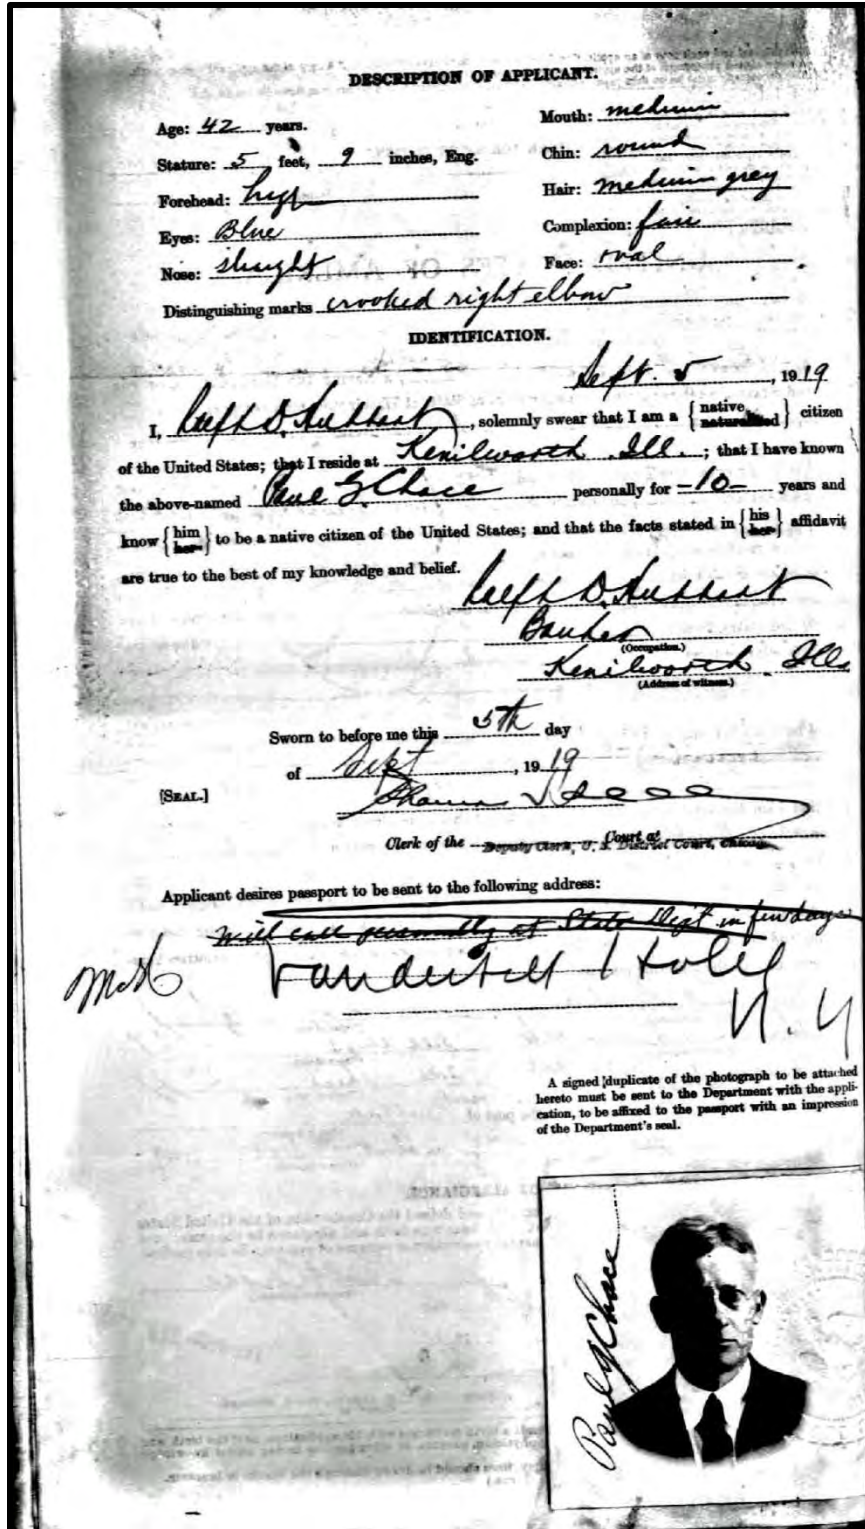 DESCRIPTION OF APPLICANT.
Age: 42 years.
Mouth: medium
Stature: 5 feet, 9 inches, Eng.
Chin: round
Forehead: high
Hair: medium grey
Eyes: Blue
Complexion: fair
Nose: straight
Face: oval
Distinguishing marks crooked right elbow
IDENTIFICATION.
Sept. 5, 1919
I, D. Hubbart, solemnly swear that I am a {native naturalized} citizen
of the United States; that I reside at Kenilworth Ill.; that I have known
the above-named Paul G Chace personally for -10- years and
know {him her} to be a native citizen of the United States; and that the facts stated in {his her} affidavit
are true to the best of my knowledge and belief.
D. Hubbart
Banker
(Occupation.)
Kenilworth Ills
(Address of witness.)
Sworn to before me this 5th day
of Sept, 1919
[SEAL.]
Clerk of the Deputy Clerk, U. S. District Court, Chicago Court at
Applicant desires passport to be sent to the following address:
Will call personally at State Dept in few days
Vanderbilt Hotel
N. Y
A signed duplicate of the photograph to be attached
hereto must be sent to the Department with the appli-
cation, to be affixed to the passport with an impression
of the Department's seal.
Paul G Chace